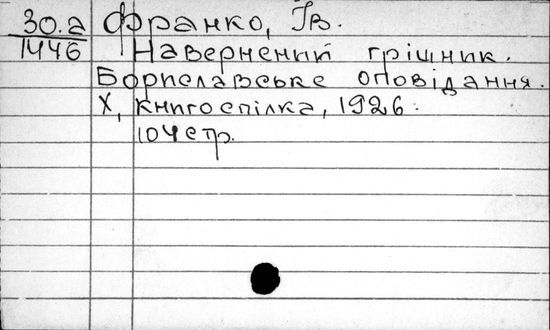 30.а Франко, Ів.
1446 Навернений грішник.
Бориславське оповідання.
Х, книгоспілка, 1926.
104 стр.